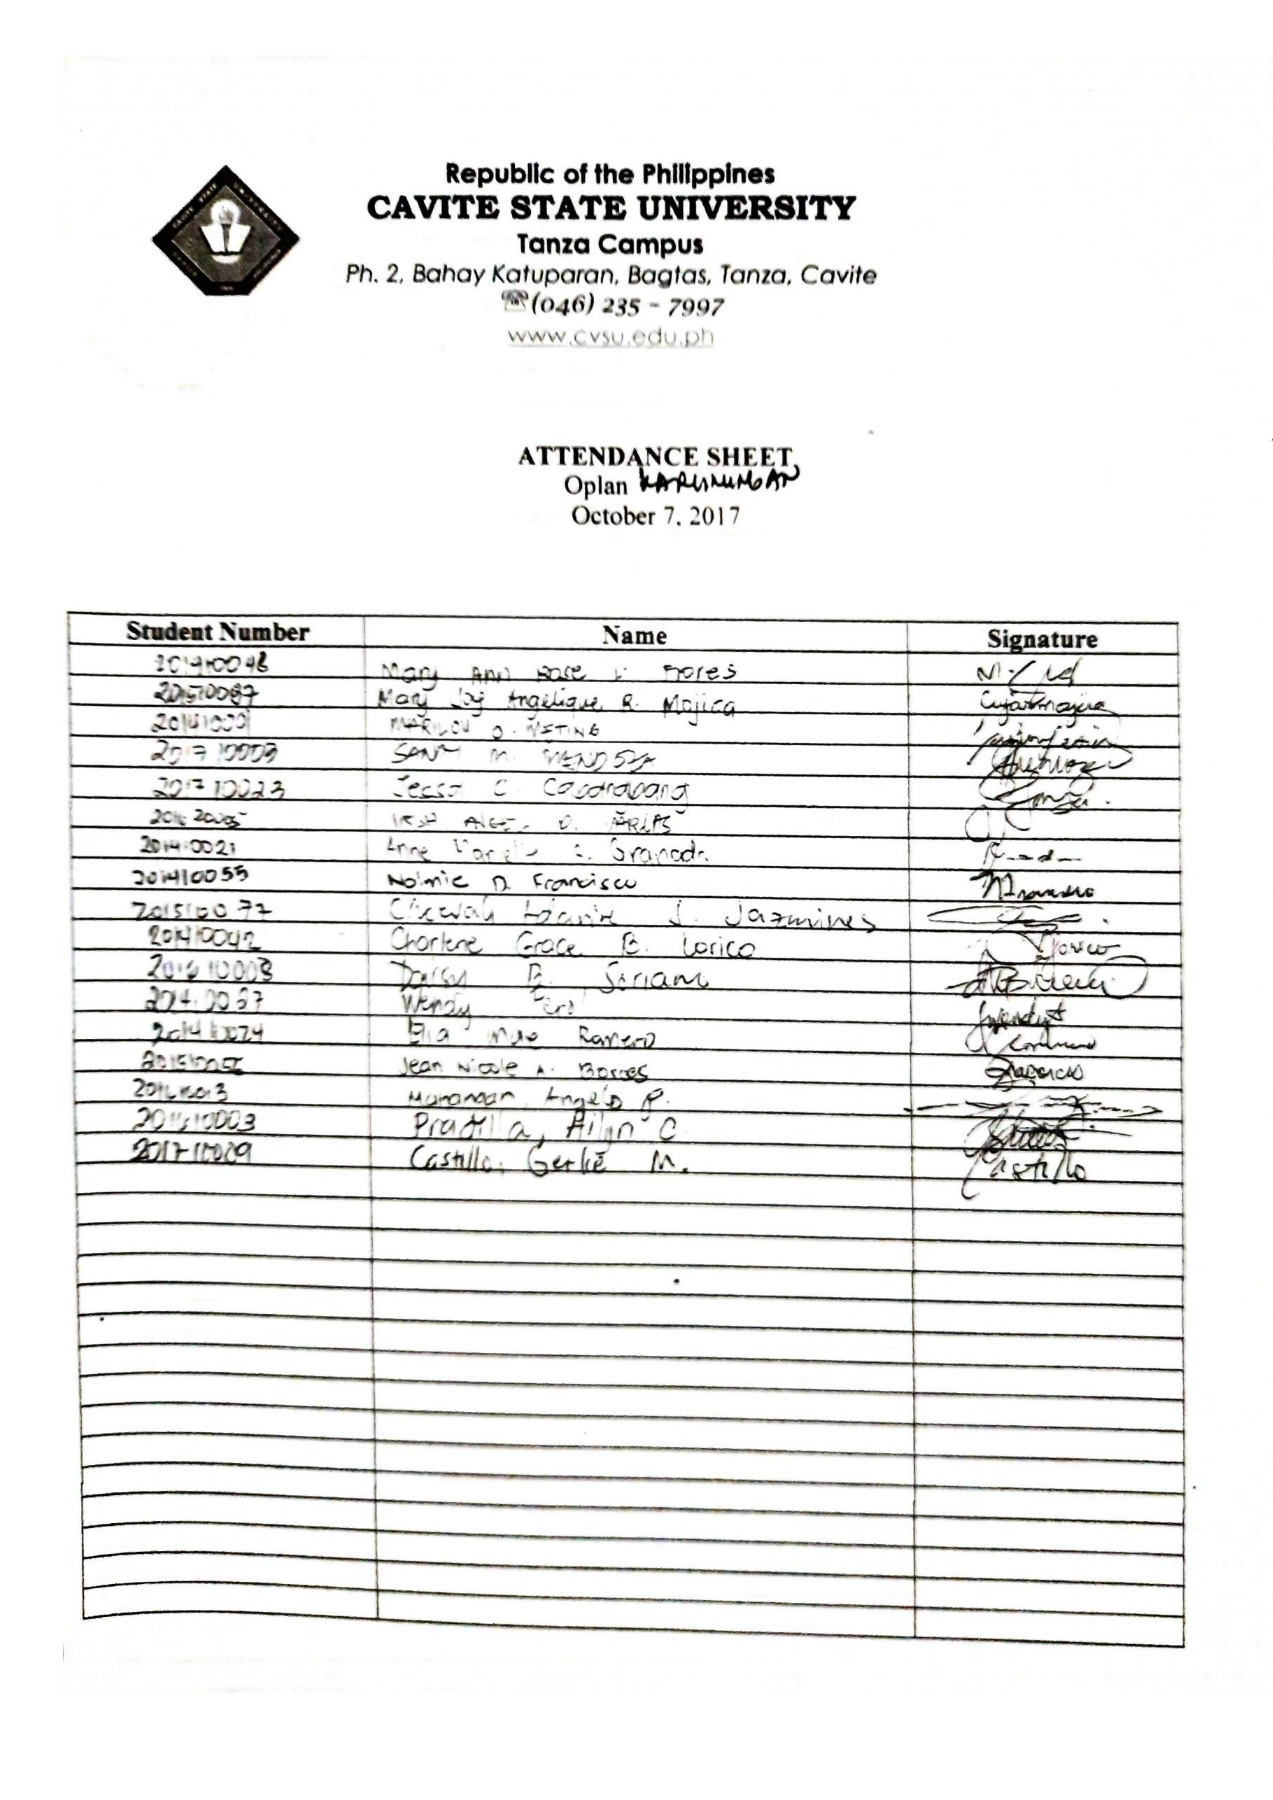 Republic of the Philippines
CAVITE STATE UNIVERSITY
Tanza Campus
Ph. 2, Bahay Katuparan, Bagtas, Tanza, Cavite
☎(046) 235 - 7997
www.cvsu.edu.ph
ATTENDANCE SHEET
Oplan KARUNUNGAN
October 7, 2017
Student Number Name Signature
201410048 Mary Ann Flores
201510087 Mary Joy Angelique R. Mojica
MARILOU O.
201710003 M. MENDOZA
201710023 C.
D.
201410021 Anne
201410055 Noimie D. Francisco
201510077 J. Jazmines
201410042 Charlene Grace B. Lorico
201610003 Daisy B. Soriano
201410037 Wendy
201410024 Ella Mae Romero
Jean Nicole A. Borres
Manangan, Angelo P.
201610003 Pradilla, Ailyn C.
201710009 Castillo, Gerlie M. Castillo